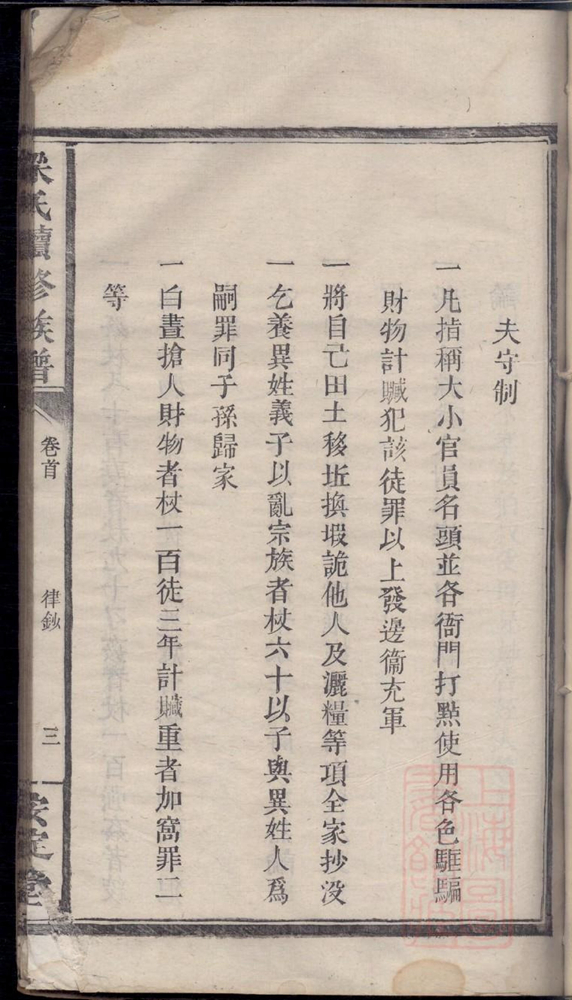 夫守制
一凡指稱大小官員名頭並各衙門打點使用各色誆騙
財物計贓犯該徒罪以上發邊衛充軍
一將自己田土移坵換叚詭他人及灑糧等項全家抄没
一乞養異姓義子以亂宗族者杖六十以子與異姓人爲
嗣罪同子孫歸家
一白晝搶人財物者杖一百徒三年計贓重者加窩罪二
等
梁氏續修族譜
卷首
律鈔
三
安定堂
上海圖書館藏